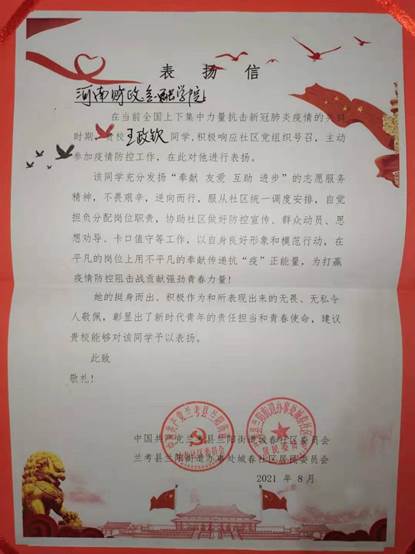 表扬信
河南财政金融学院
在当前全国上下集中力量抗击新冠肺炎疫情的关键
时期，贵校王政钦同学，积极响应社区党组织号召，主动
参加疫情防控工作，在此对他进行表扬。
该同学充分发扬“奉献 友爱 互助 进步”的志愿服务
精神，不畏艰辛，逆向而行，服从社区统一调度安排，自觉
担负分配岗位职责，协助社区做好防控宣传、群众动员、思
想劝导、卡口值守等工作，以自身良好形象和模范行动，在
平凡的岗位上用不平凡的奉献传递抗“疫”正能量，为打赢
疫情防控阻击战贡献强劲青春力量！
她的挺身而出、积极作为和所表现出来的无畏、无私令
人敬佩，彰显出了新时代青年的责任担当和青春使命，建议
贵校能够对该同学予以表扬。
此致
敬礼！
中国共产党兰考县兰阳街道城春社区委员会
兰考县兰阳街道办事处城春社区居民委员会
2021 年 8月